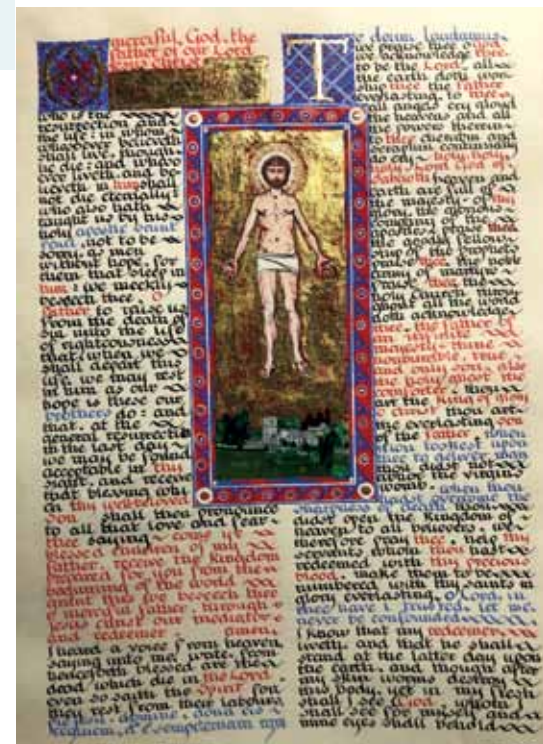 merciful God, the
father of our Lord
Jesus Christ
who is the
resurrection and
the life: in whom
whosoever believeth
shall live, though
he die: and whoso
ever liveth, and be-
lieveth in him shall
not die eternally:
who also hath
taught us by his
holy apostle saint
Paul, not to be
sorry, as men
without hope, for
them that sleep in
him: we meekly
beseech thee, O
father to raise us
from the death of
sin unto the life
of righteousness
that when we
shall depart this
life, we may rest
in him as our
hope is these our
brothers do: and
that, at the
general resurrection
in the last day
we may be found
acceptable in thy
sight, and receive
that blessing whi
ch thy well-beloved
son shall then pronounce
to all that love and fear
thee saying come ye
blessed children of my
father, receive the kingdom
prepared for you from the
beginning of the world
grant this we beseech thee
O merciful father, through
Jesus Christ our mediator
and redeemer amen.
I heard a voice from heaven
saying unto me, write, from
henceforth blessed are the
dead which die in the Lord
even so saith the Spirit for
they rest from their labours
domine, dona eis
requiem, sempiternam
Te deum laudamus
we praise thee o God
we acknowledge thee
to be the Lord, all
the earth doth wor
ship thee the Father
everlasting, to thee
all angels cry aloud
the heavens and all
the powers therein
to thee cherubim and
seraphim continually
do cry holy, holy,
holy, Lord God of
Sabaoth heaven and
earth are full of
the majesty of thy
glory, the glorious
company of the
apostles praise thee
the goodly fellow
ship of the prophets
praise thee the noble
army of martyrs
praise thee the
holy church throu
ghout all the world
doth acknowledge
thee, the father of
an infinite
majesty thine
honourable, true
and only son, also
the holy ghost the
comforter thou
art the King of glory
O Christ thou art
the everlasting son
of the father, when
thou tookest upon
thee to deliver man
thou didst not
abhor the virgins
womb. when thou
hadst overcome the
sharpness of death thou
didst open the kingdom of
heaven to all believers we
therefore pray thee, help thy
servants whom thou hast
redeemed with thy precious
blood, make them to be
numbered with thy saints in
glory everlasting, O Lord, in
thee have I trusted, let me
never be confounded
I know that my redeemer
liveth and that he shall
stand at the latter day upon
the earth, and though after
my skin worms destroy
this body, yet in my flesh
shall I see God, whom I
shall see for myself and
mine eyes shall behold